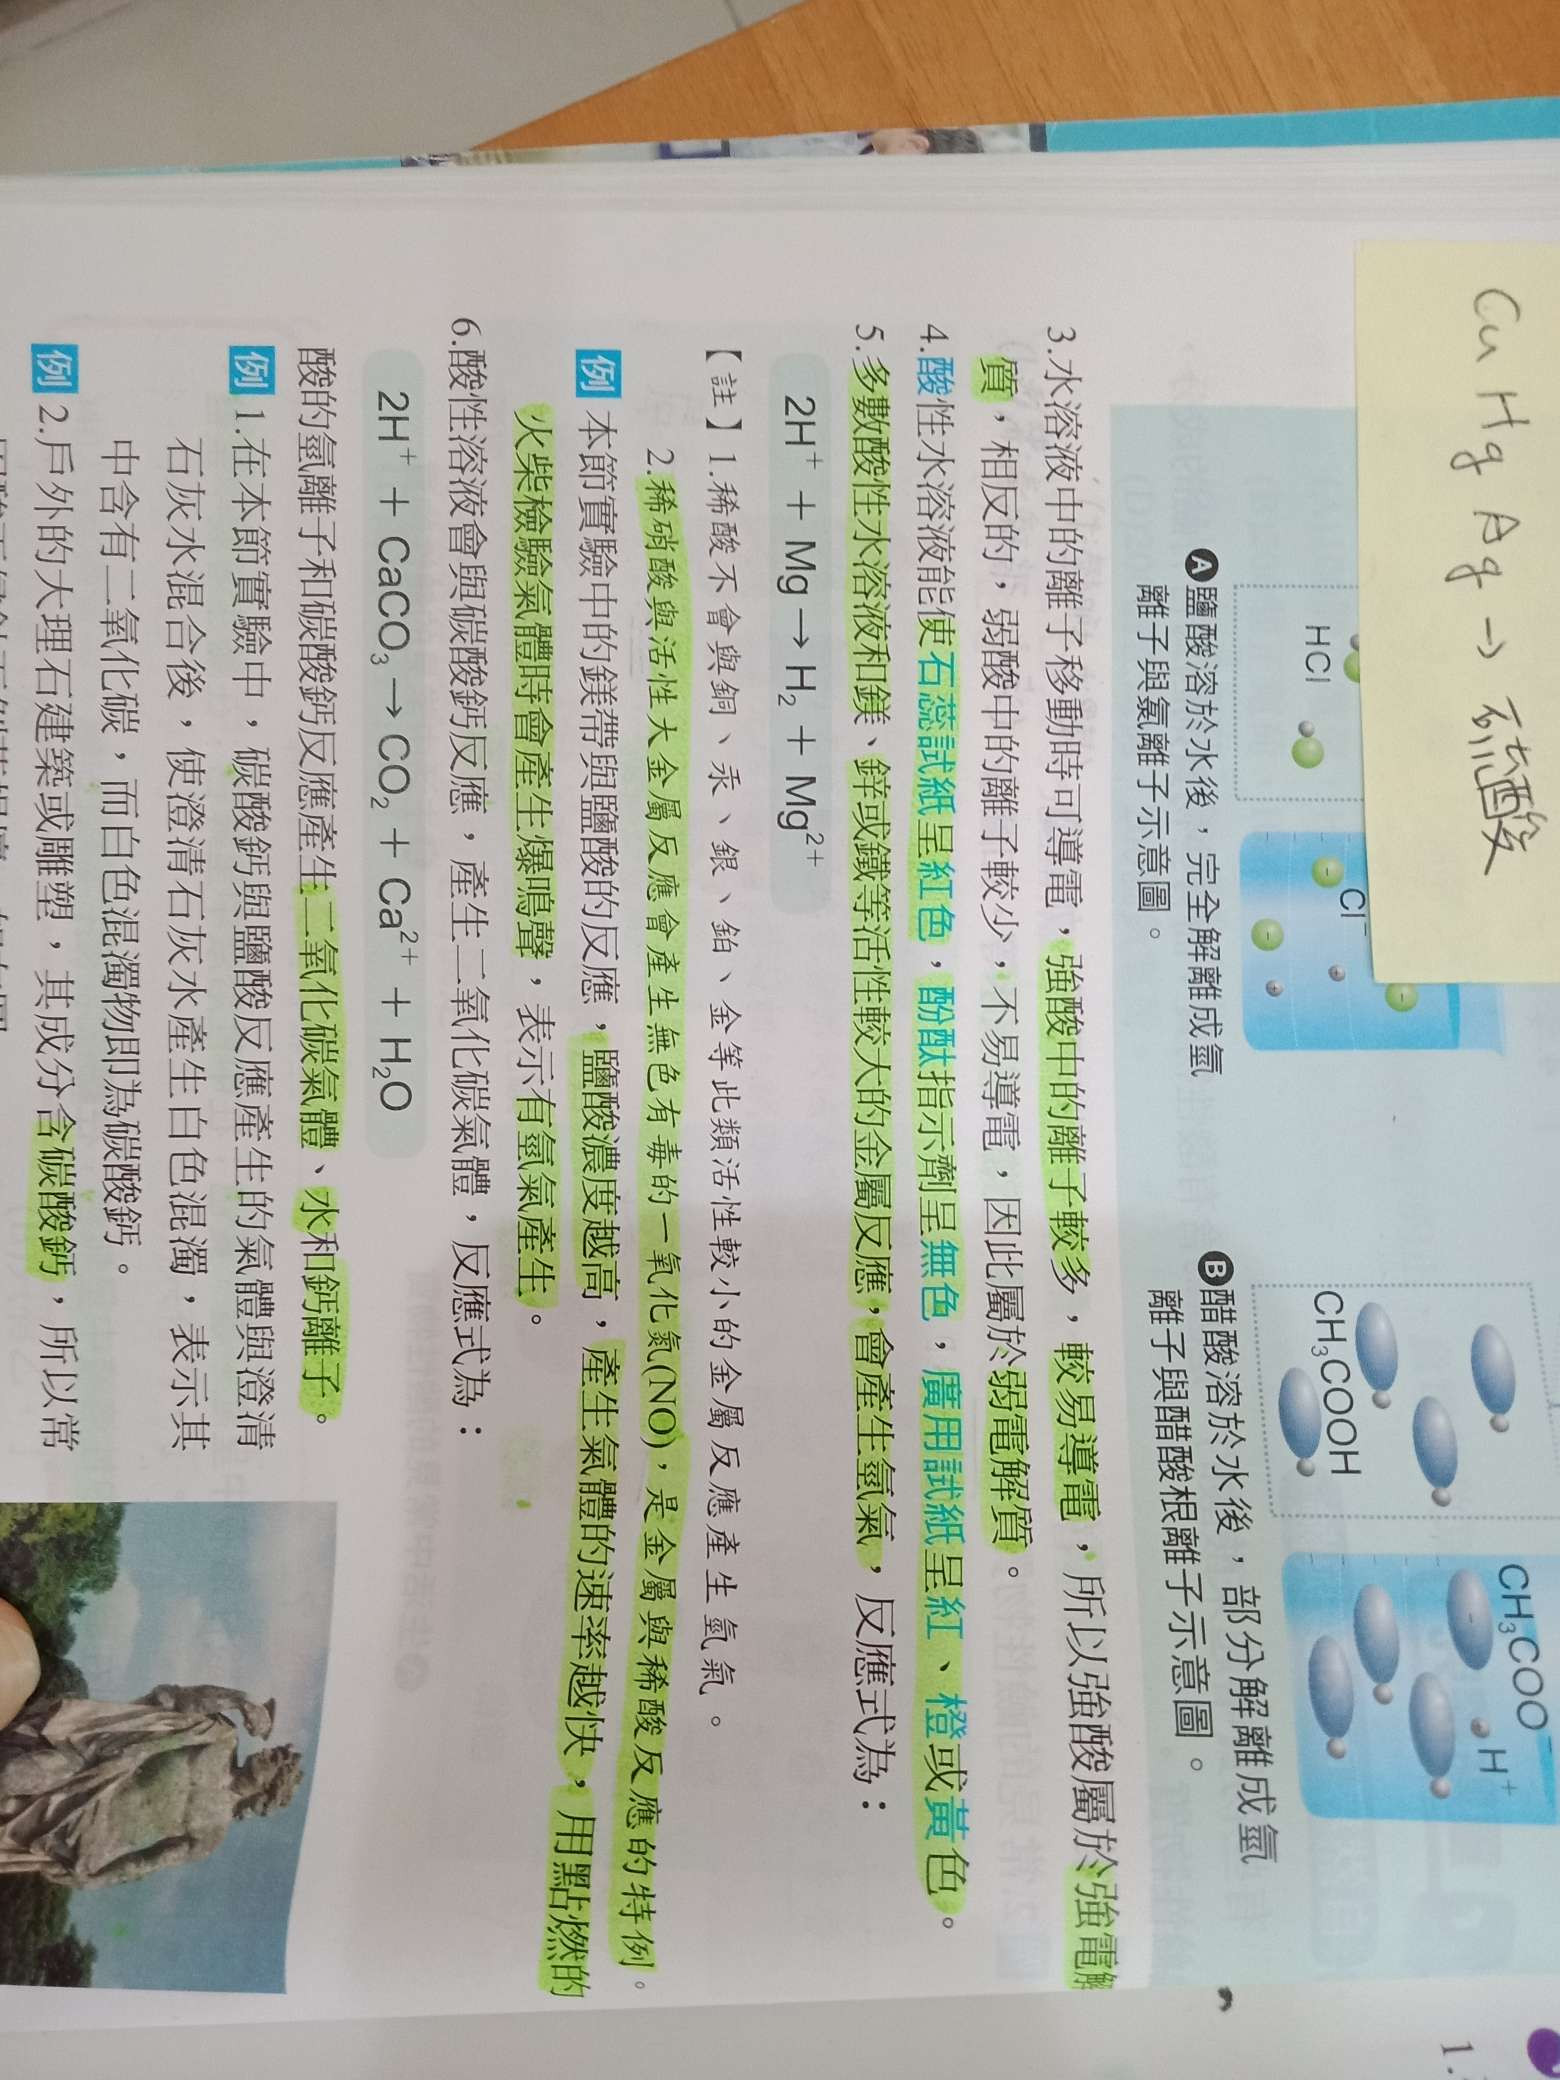 Cu Hg Ag → 硫酸
HCl
Cl⁻
CH₃COOH
CH₃COO⁻
H⁺
A 鹽酸溶於水後，完全解離成氫
離子與氯離子示意圖。
B 醋酸溶於水後，部分解離成氫
離子與醋酸根離子示意圖。
3.水溶液中的離子移動時可導電，強酸中的離子較多，較易導電，所以強酸屬於強電解
質，相反的，弱酸中的離子較少，不易導電，因此屬於弱電解質。
4.酸性水溶液能使石蕊試紙呈紅色，酚酞指示劑呈無色，廣用試紙呈紅、橙或黃色。
5.多數酸性水溶液和鎂、鋅或鐵等活性較大的金屬反應，會產生氫氣，反應式為：
2H⁺ + Mg → H₂ + Mg²⁺
【註】1.稀酸不會與銅、汞、銀、鉑、金等此類活性較小的金屬反應產生氫氣。
2.稀硝酸與活性大金屬反應會產生無色有毒的一氧化氮(NO)，是金屬與稀酸反應的特例。
例 本節實驗中的鎂帶與鹽酸的反應，鹽酸濃度越高，產生氣體的速率越快，用點燃的
火柴檢驗氣體時會產生爆鳴聲，表示有氫氣產生。
6.酸性溶液會與碳酸鈣反應，產生二氧化碳氣體，反應式為：
2H⁺ + CaCO₃ → CO₂ + Ca²⁺ + H₂O
酸的氫離子和碳酸鈣反應產生二氧化碳氣體、水和鈣離子。
例 1.在本節實驗中，碳酸鈣與鹽酸反應產生的氣體與澄清
石灰水混合後，使澄清石灰水產生白色混濁，表示其
中含有二氧化碳，而白色混濁物即為碳酸鈣。
例 2.戶外的大理石建築或雕塑，其成分含碳酸鈣，所以常
1.